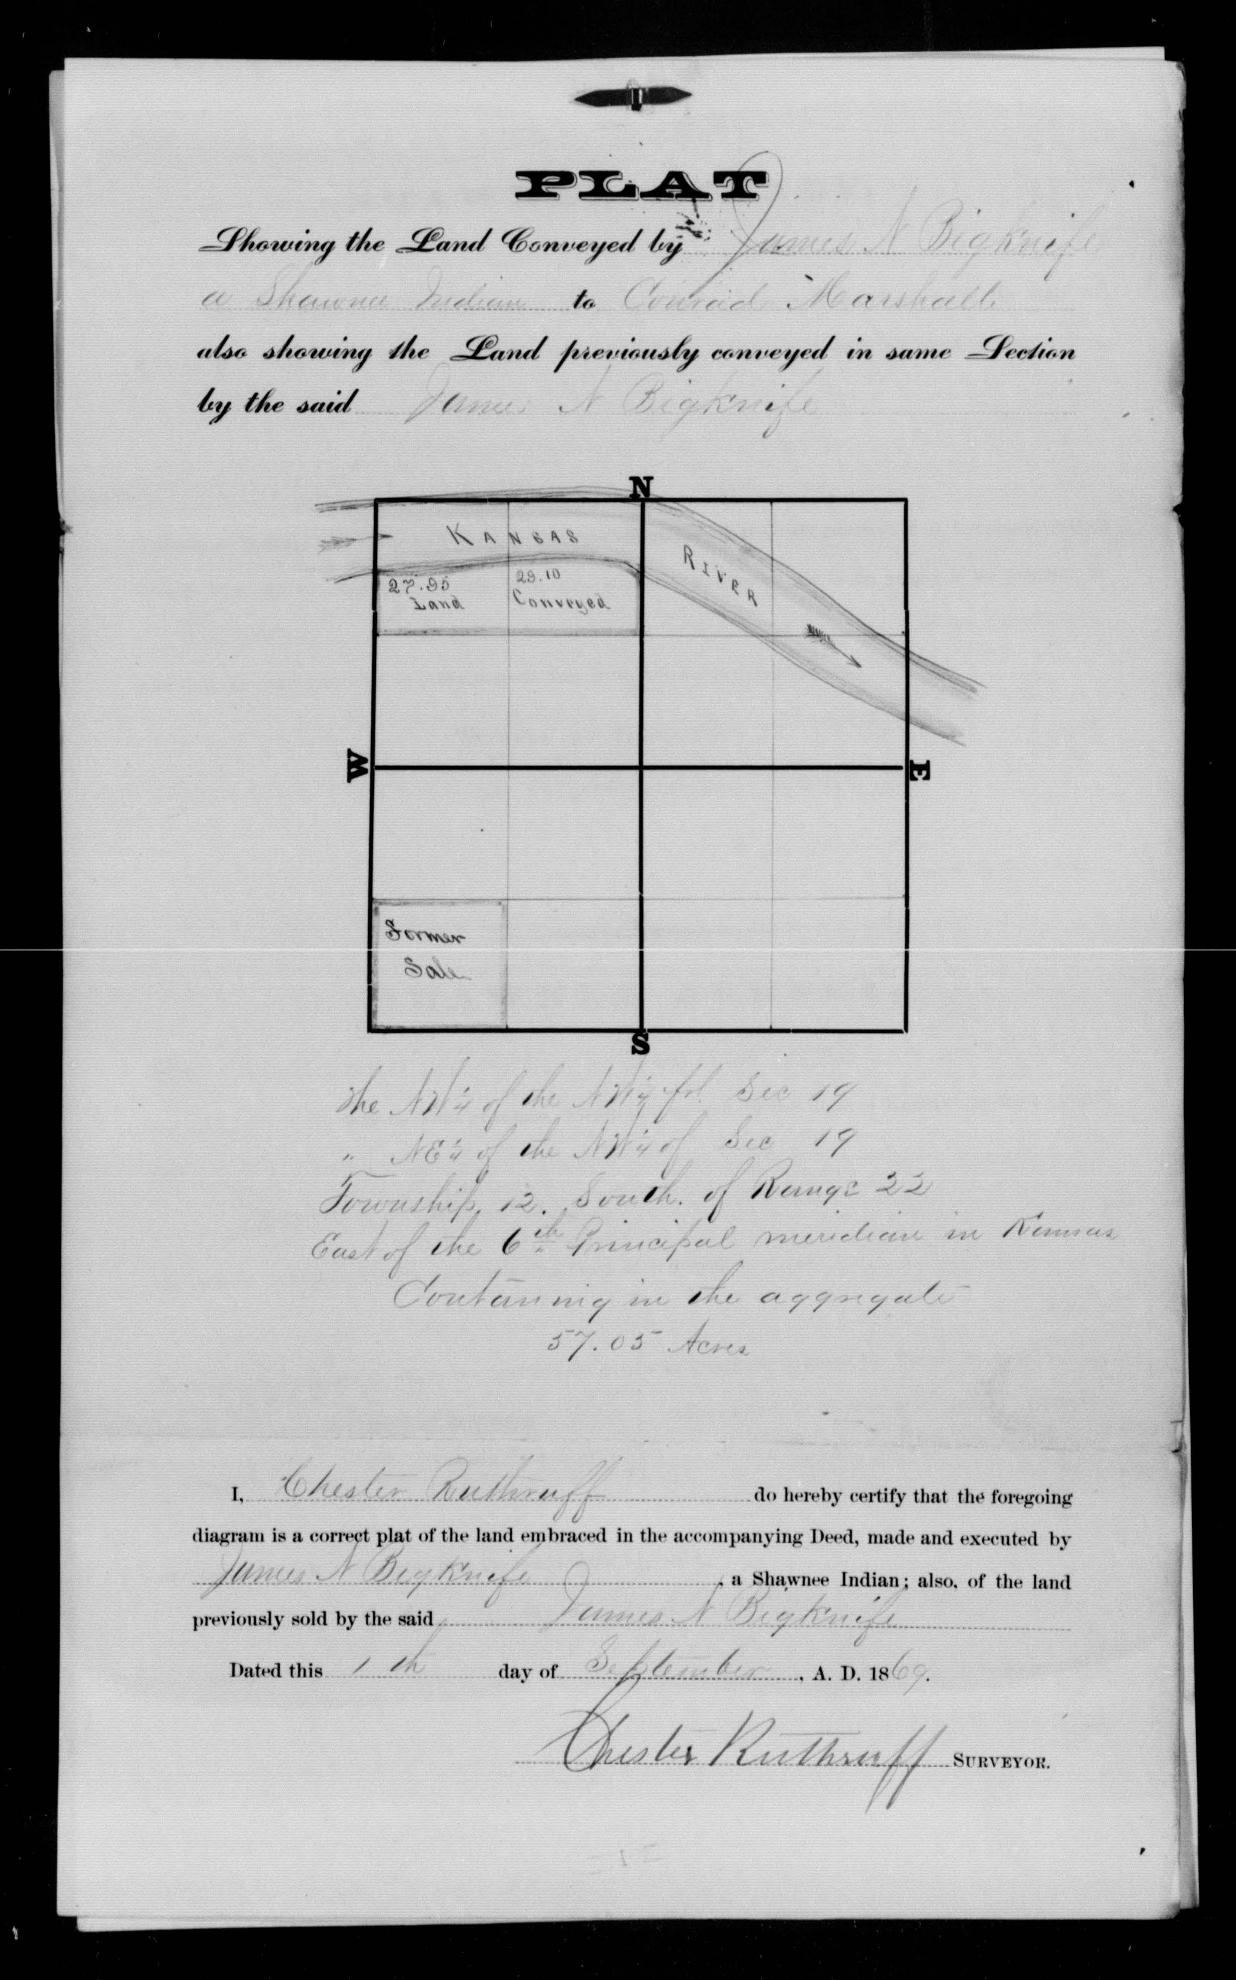 PLAT
Showing the Land Conveyed by James N Bigknife
a Shawnee Indian to Conrad Marshall
also showing the Land previously conveyed in same Section
by the said James N Bigknife
N
KANSAS
RIVER
27.95
Land
29.10
Conveyed
W
E
Former
Sale
S
The NW¼ of the NW¼ of Sec 19
" NE¼ of the NW¼ of Sec 19
Township 12. South. of Range 22
East of the 6th Principal meridian in Kansas
Containing in the aggregate
57.05 Acres
I, Chester Ruthruff do hereby certify that the foregoing
diagram is a correct plat of the land embraced in the accompanying Deed, made and executed by
James N Bigknife, a Shawnee Indian; also, of the land
previously sold by the said James N Bigknife
Dated this 1th day of September, A. D. 1869.
Chester Ruthruff SURVEYOR.